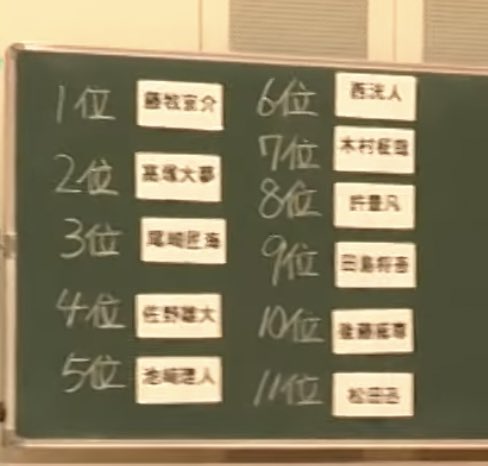 1位 藤牧京介
2位 髙塚大夢
3位 尾崎匠海
4位 佐野雄大
5位 池﨑理人
6位 西洸人
7位 木村柾哉
8位 許豊凡
9位 田島将吾
10位 後藤威尊
11位 松田迅